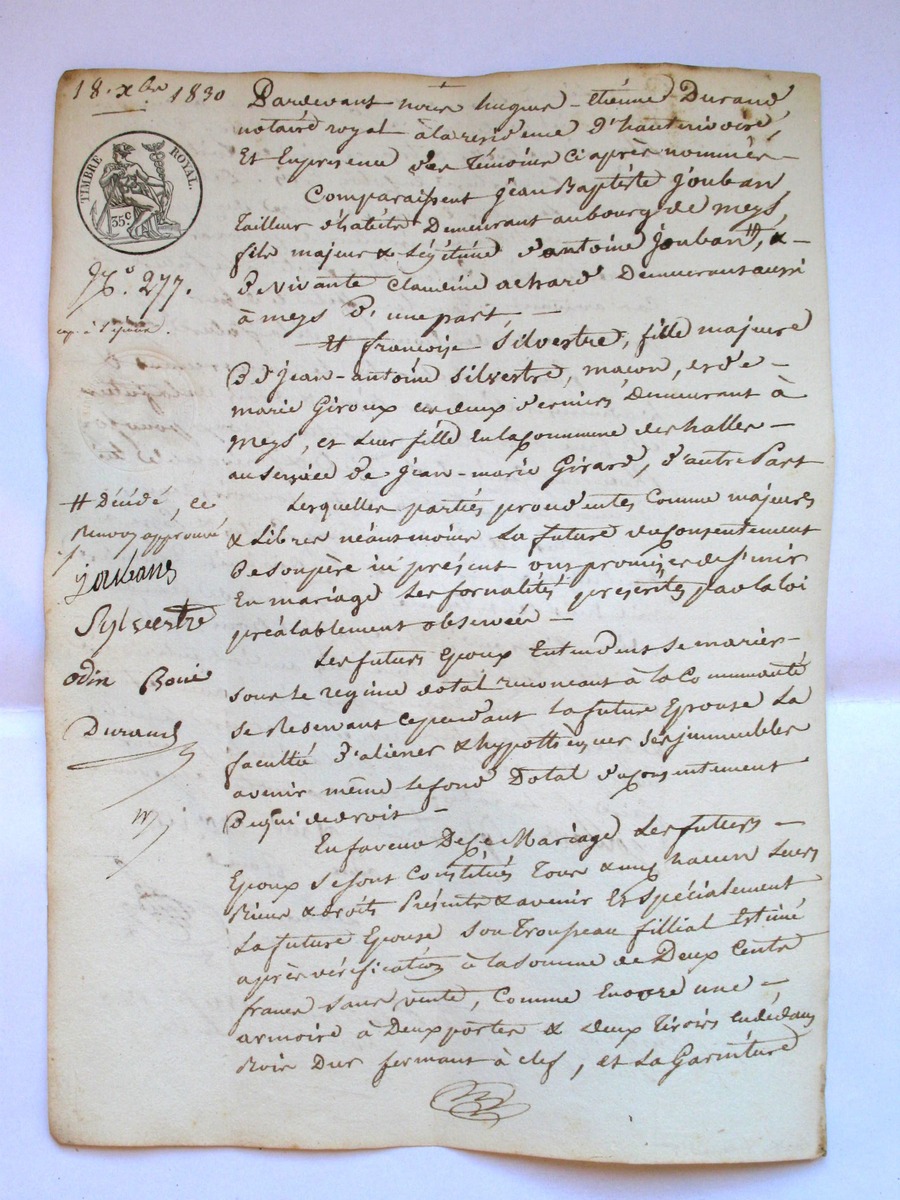 18. xbre 1830
TIMBRE ROYAL.
35 c.
No. 277.
exp. à l'épouse.
# Décédé, ce
renvoy approuvé
Jouband
Sylvestre
odin Boué
Durand
Pardevant nous hugues-étienne Durand
notaire royal à la residence d'hauterivoire,
Et En presence des Témoins Ci après nommés –
Comparaissent Jean Baptiste Jouban
Tailleur d'habits Demeurant au bourg de meys,
fils majeur & Légitime d'antoine Jouban #, & –
De vivante Claudine achard Demeurant aussi
à meys D'une part –
Et françoise Silvestre, fille majeure
D'Jean-antoine Silvestre, maçon, et de –
marie Giroux ces deux derniers Demeurant à
meys, et leur fille En la Commune des halles –
au service De Jean-marie Girard, d'autre Part
Lesquelles partiés procedentes Comme majeurs
& Libres néanmoins La future du Consentement
De son père ici présent ont promis de s'unir
En mariage Les formalités prescrites par la loi
préalablement observées –
Les futurs Epoux Entendent Se marier –
sous le regime dotal renonceant à la Communauté
se Reservant Cependant La future Epouse La
faculté d'aliener & hypothequer Ses jmmeubles
avenir même le fond Dotal du Consentement
De qui de droit –
En faveur De Ce Mariage Les futurs –
Epoux Se sont Constitués Tous & un chacun Leurs
Biens & droits Présents & avenir Et Spécialement
La future Epouse Son Trousseau fillial Estimé
après vérification à la Somme de Deux Cents
francs sans vente, Comme Encore une –
armoire à Deux portes & deux Tiroirs en dedans
Bois Dur fermant à clef, et La Garniture